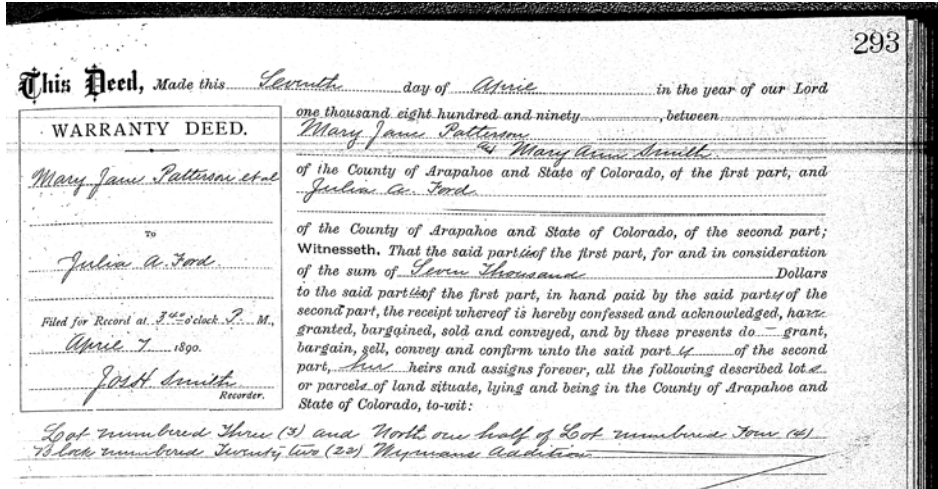 293
This Deed, Made this Seventh day of April in the year of our Lord
one thousand eight hundred and ninety, between
Mary Jane Patterson
and Mary Ann Smith
of the County of Arapahoe and State of Colorado, of the first part, and
Julia A. Ford
of the County of Arapahoe and State of Colorado, of the second part;
Witnesseth, That the said parties of the first part, for and in consideration
of the sum of Seven Thousand Dollars
to the said parties of the first part, in hand paid by the said party of the
second part, the receipt whereof is hereby confessed and acknowledged, have
granted, bargained, sold and conveyed, and by these presents do – grant,
bargain, sell, convey and confirm unto the said party of the second
part, her heirs and assigns forever, all the following described lots
or parcels of land situate, lying and being in the County of Arapahoe and
State of Colorado, to-wit:
WARRANTY DEED.
Mary Jane Patterson et al
To
Julia A. Ford.
Filed for Record at 3 40 o'clock P. M.,
April 7 1890.
Jos H Smith
Recorder.
Lot numbered Three (3) and North one half of Lot numbered Four (4)
Block numbered Twenty two (22) Wymans Addition